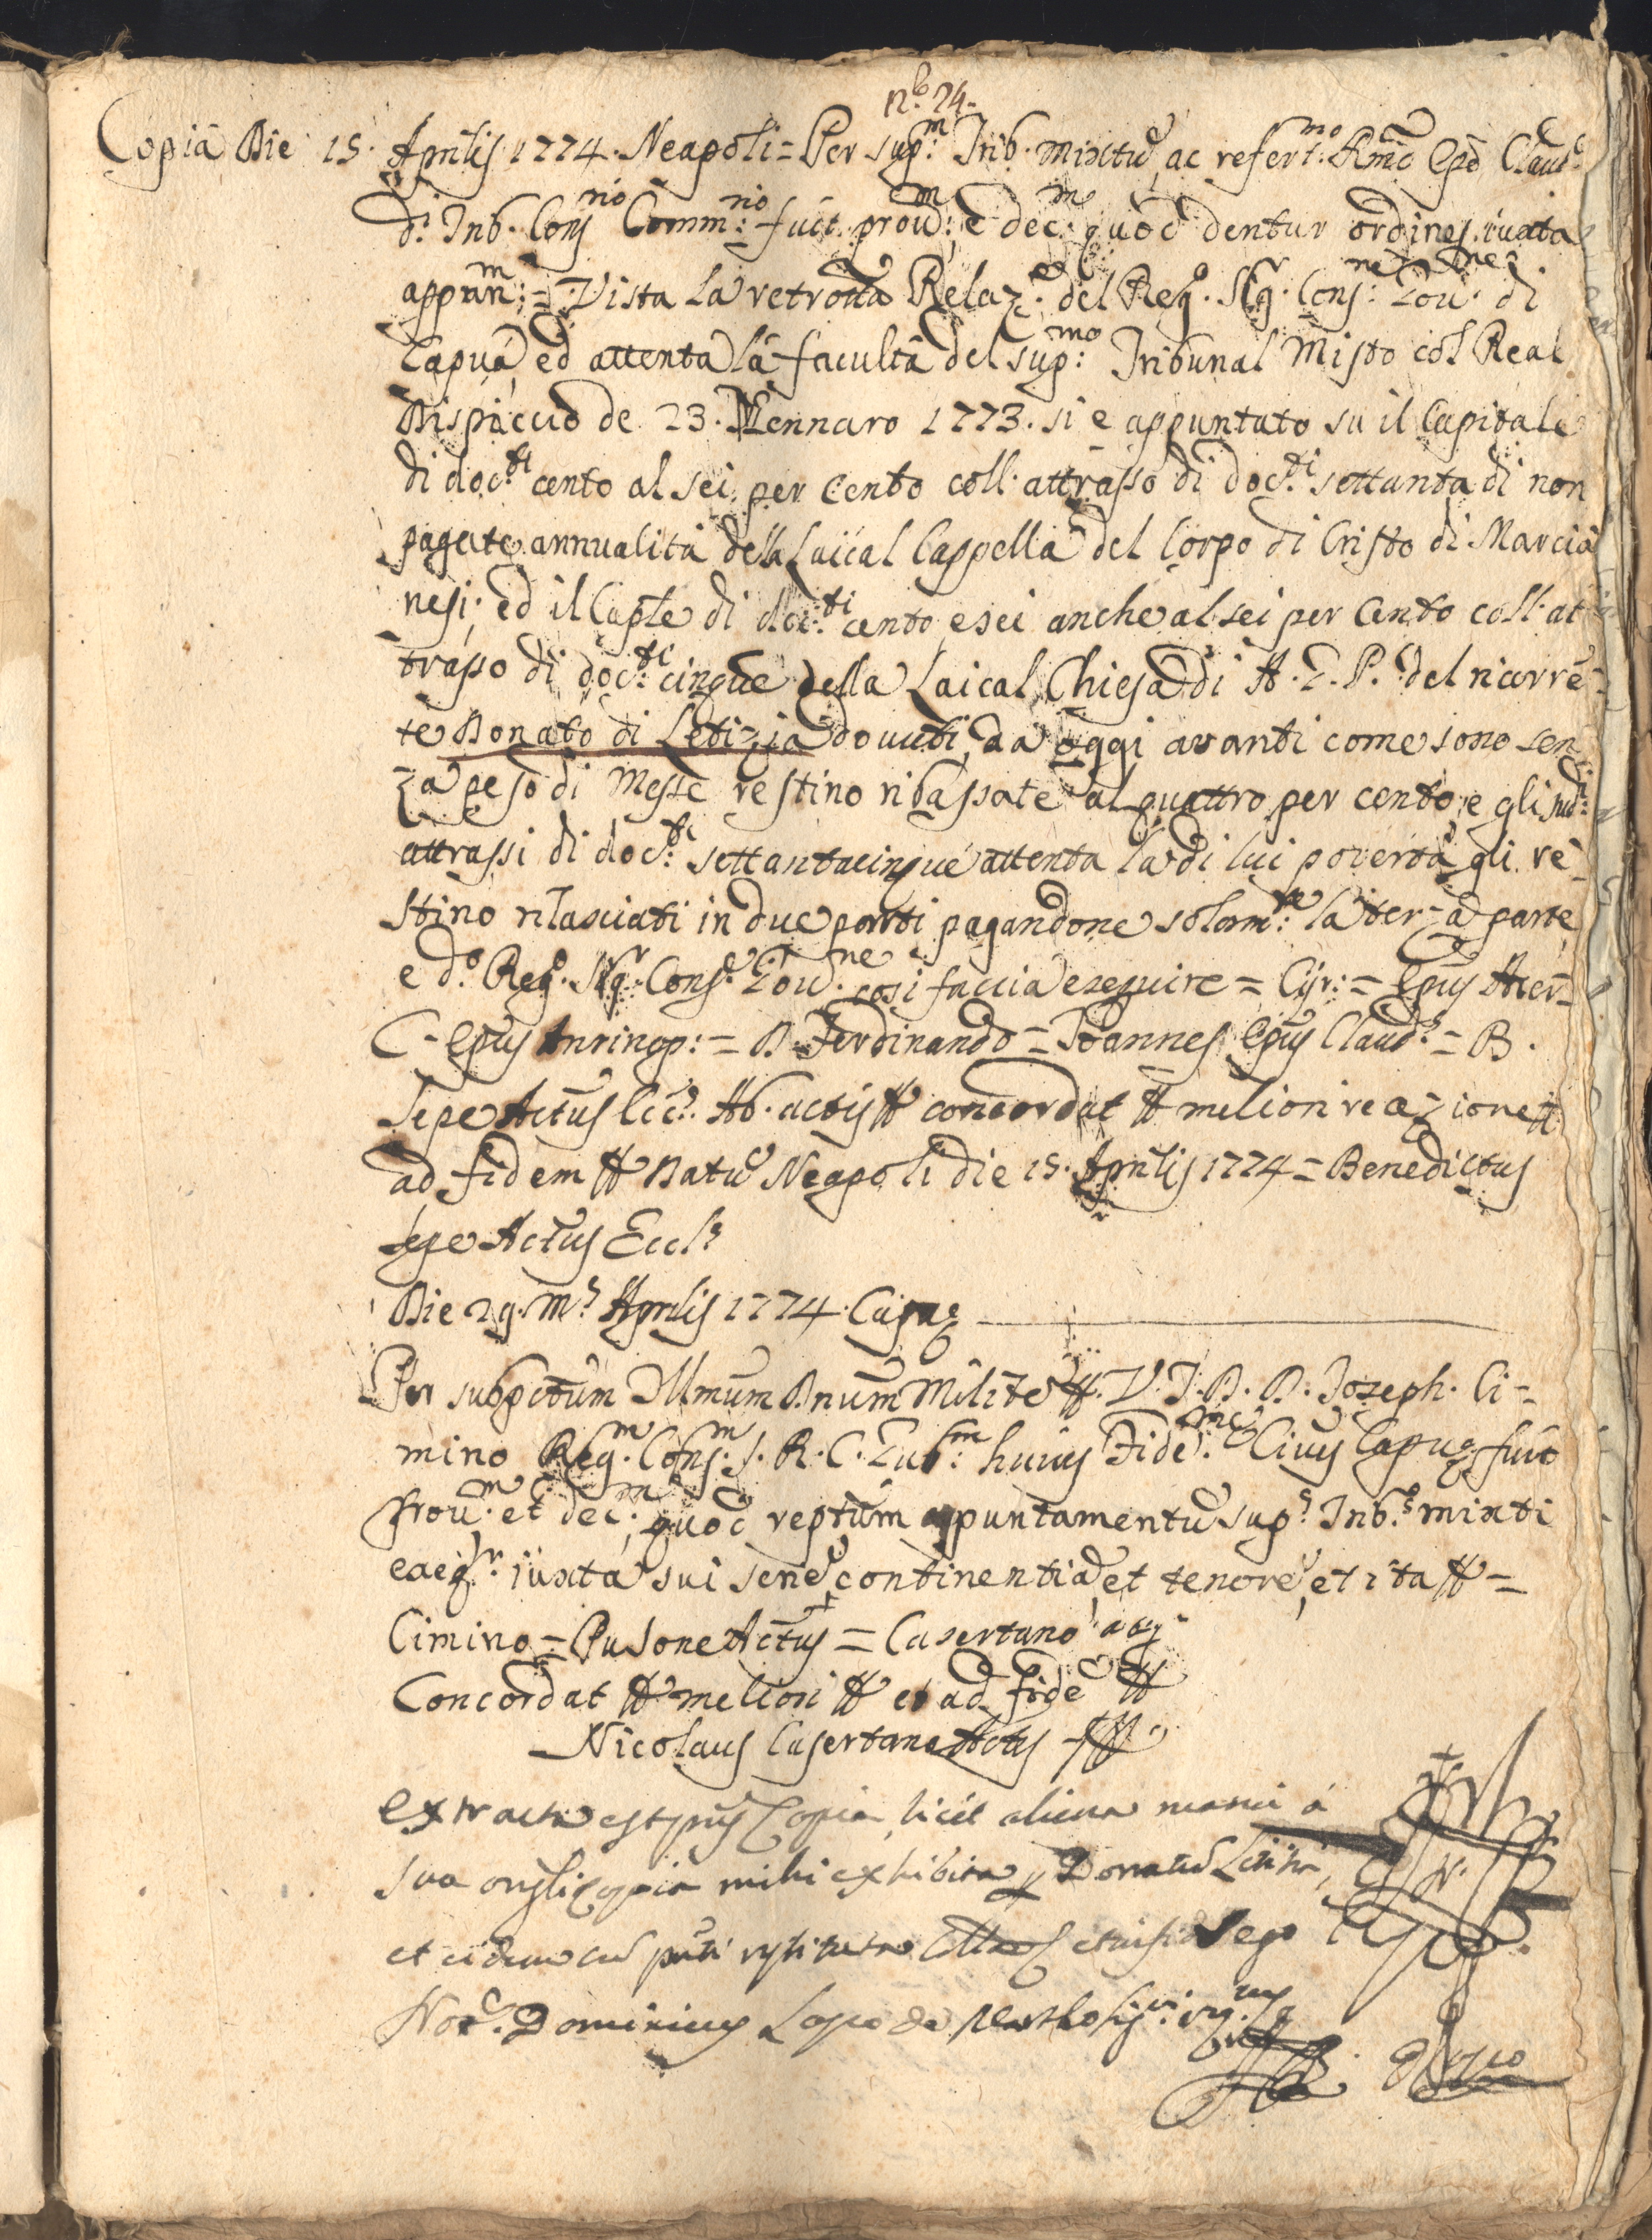 n.° 24.
Copia Die 15. Aprilis 1774. Neapoli = Per sup.m Trib. mixtũ, ac refert. R.mo Epõ Claud.
d.i Trib. Cons.rio Comm.rio fuit prov.m, e dec.m quod dentur ordines iuxta
appun.m = Vista la retrõtta Relaz.e del Reg.o Sig.r Cons.re Gov.ne di
Capua, ed attenta la facultà del sup.mo Tribunal Misto col Real
Dispaccio de 23. Gennaro 1773. si è appuntato su il Capitale
di doc.ti cento al sei per cento coll'attrasso di doc.ti settanta di non
pagate annualità della Laical Cappella del Corpo di Cristo di Marcia
nesi; ed il Caple di doc.ti cento e sei anche al sei per cento coll'at
trasso di doc.ti cinque della Laical Chiesa di A. G. P. del ricorrẽ-
te Donato di Letizia dovuti, da oggi avanti come sono sen
za peso di Messe restino ribassate al quattro per cento, e gli sud.i
attrassi di doc.ti settantacinque attenta la di lui povertà gli re-
stino rilasciati in due parti pagandone solam.te la terza parte,
e d.o Reg.o Sig.r Cons.e Gov.ne così faccia eseguire = Cyr: = Epus Acer-
C. Epus = D. Ferdinando = Ioannes Epus Claud.s = B.
Sepe Actus Ecc. Ab. actis &c concordat &c meliori reazione &c
ad fidem &c Datũ Neapoli die 15. Aprilis 1774 = Benedictus
Sepe Actus Eccl.s
Die 29. m.s Aprilis 1774. Capuę
Per subpctum Illmum Dnum Militẽ &c. U. J. D. D. Joseph. Ci-
mino Reg.m Cons.m S. R. C. Gub.m huius Fide.me Civis Capuę fuit
prov.m et dec.m, quod reptum appuntamentũ sup.s Trib.s mixti
exeq.r iuxta sui seriẽ, continentiã, et tenorẽ, et ita &c =
Cimino = Pusone Actus = Casertano
Concordat &c meliori &c et ad fidẽ &c
Nicolaus Casertano Actus
Extracta est pñs Copia, licet aliena manu à
sua orgli copia mihi exhibita p Donatũ Letitia,
et eidem cũ pñti restituta ego
Not. Dominicus